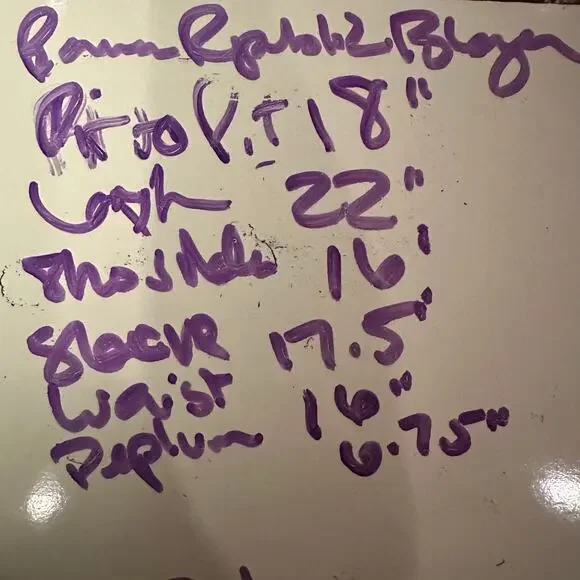 Banana Republic Blazer
Pit to Pit 18"
Length 22"
Shoulder 16"
Sleeve 17.5"
Waist 16"
Peplum 6.75"